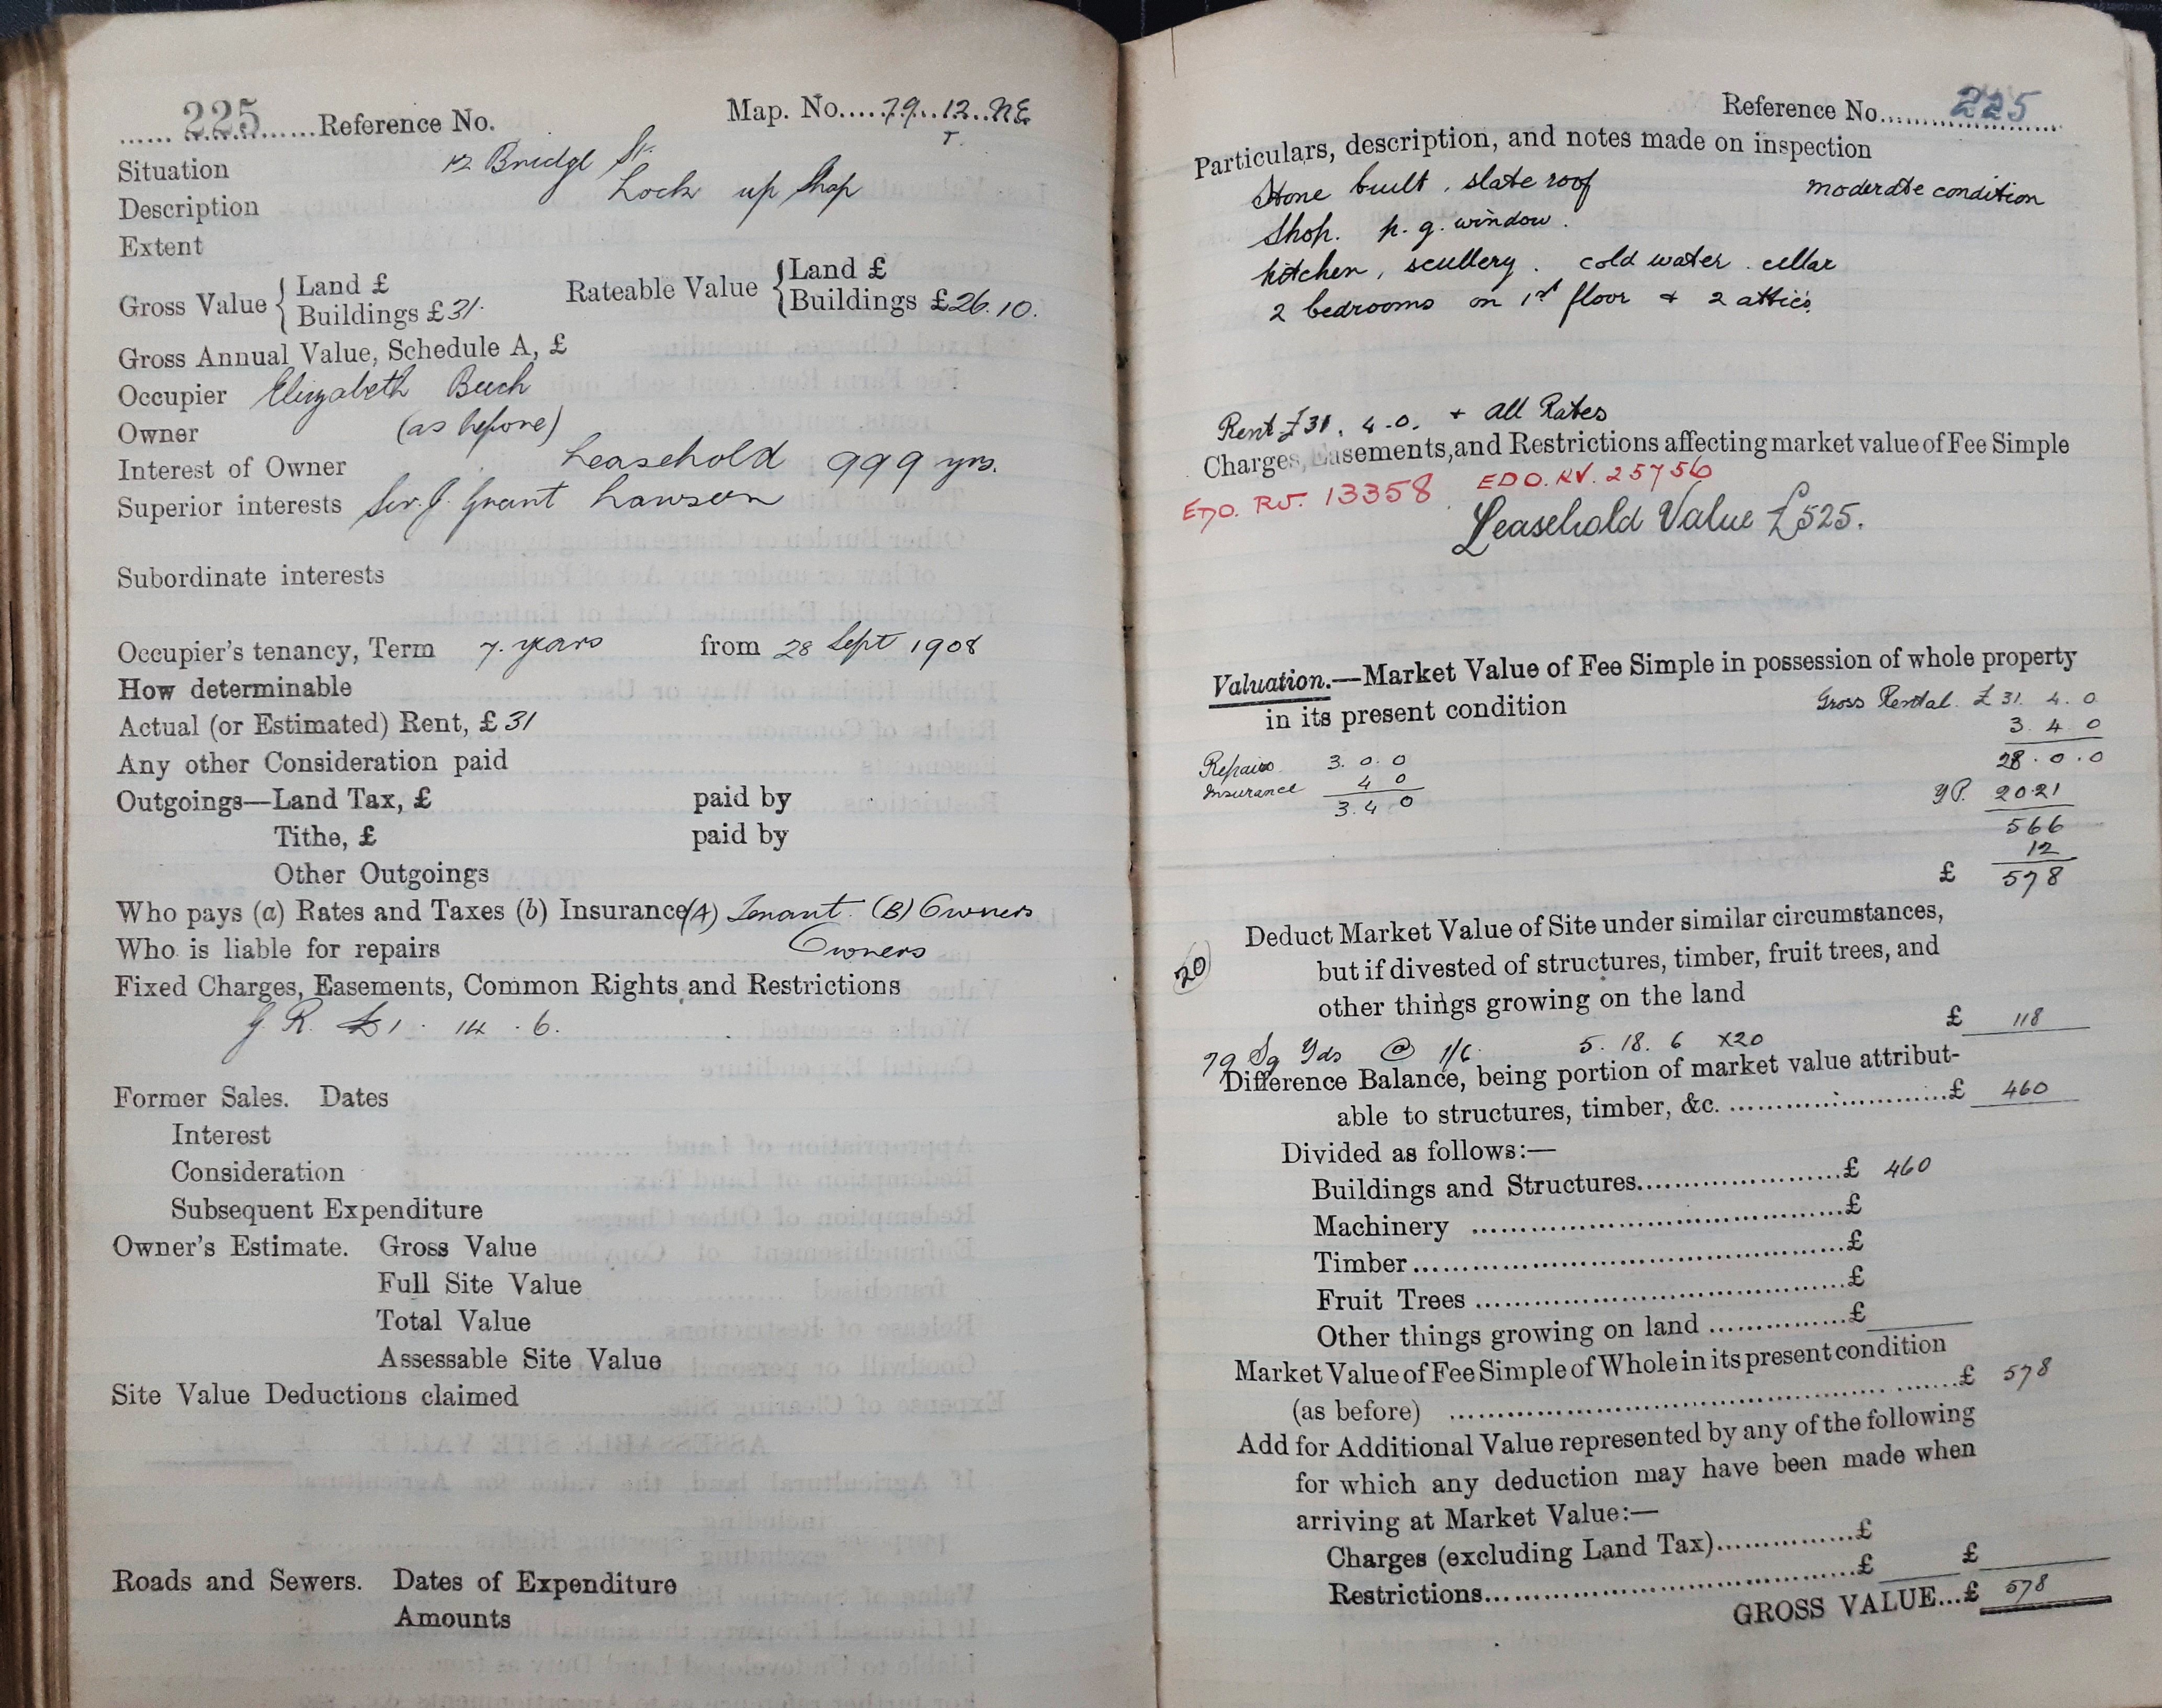 225 Reference No. Map. No. 79. 12. N.E.
T.
Situation 12 Bridge St.
Description Lock up Shop
Extent
Gross Value { Land £ Rateable Value { Land £
Buildings £31. Buildings £26.10.
Gross Annual Value, Schedule A, £
Occupier Elizabeth Beech
Owner (as before)
Interest of Owner Leasehold 999 yrs.
Superior interests Sir. J. Grant Lawson
Subordinate interests
Occupier's tenancy, Term 7. years from 28 Sept 1908
How determinable
Actual (or Estimated) Rent, £ 31
Any other Consideration paid
Outgoings—Land Tax, £ paid by
Tithe, £ paid by
Other Outgoings
Who pays (a) Rates and Taxes (b) Insurance (A) Tenant. (B) Owners
Who is liable for repairs Owners
Fixed Charges, Easements, Common Rights and Restrictions
G. R. £1. 14. 6.
Former Sales. Dates
Interest
Consideration
Subsequent Expenditure
Owner's Estimate. Gross Value
Full Site Value
Total Value
Assessable Site Value
Site Value Deductions claimed
Roads and Sewers. Dates of Expenditure
Amounts
Reference No. 225
Particulars, description, and notes made on inspection
Stone built, slate roof moderate condition
Shop. p. g. window.
kitchen, scullery. cold water. cellar
2 bedrooms on 1st floor + 2 attics.
Rent £31. 4.0. + All Rates
Charges, Easements, and Restrictions affecting market value of Fee Simple
EDO. RV. 13358 EDO. RV. 25756
Leasehold Value £525.
Valuation.—Market Value of Fee Simple in possession of whole property
in its present condition Gross Rental. £ 31. 4. 0
3. 4. 0
Repairs 3. 0. 0 28. 0. 0
Insurance 4 0 YP. 20.21
3. 4. 0 566
12
£ 578
Deduct Market Value of Site under similar circumstances,
20 but if divested of structures, timber, fruit trees, and
other things growing on the land
£ 118
79 Sq Yds @ 1/6. 5. 18. 6 x20
Difference Balance, being portion of market value attribut-
able to structures, timber, &c. £ 460
Divided as follows:—
Buildings and Structures £ 460
Machinery £
Timber £
Fruit Trees £
Other things growing on land £
Market Value of Fee Simple of Whole in its present condition
(as before) £ 578
Add for Additional Value represented by any of the following
for which any deduction may have been made when
arriving at Market Value:—
Charges (excluding Land Tax) £
Restrictions £ £
GROSS VALUE...£ 578